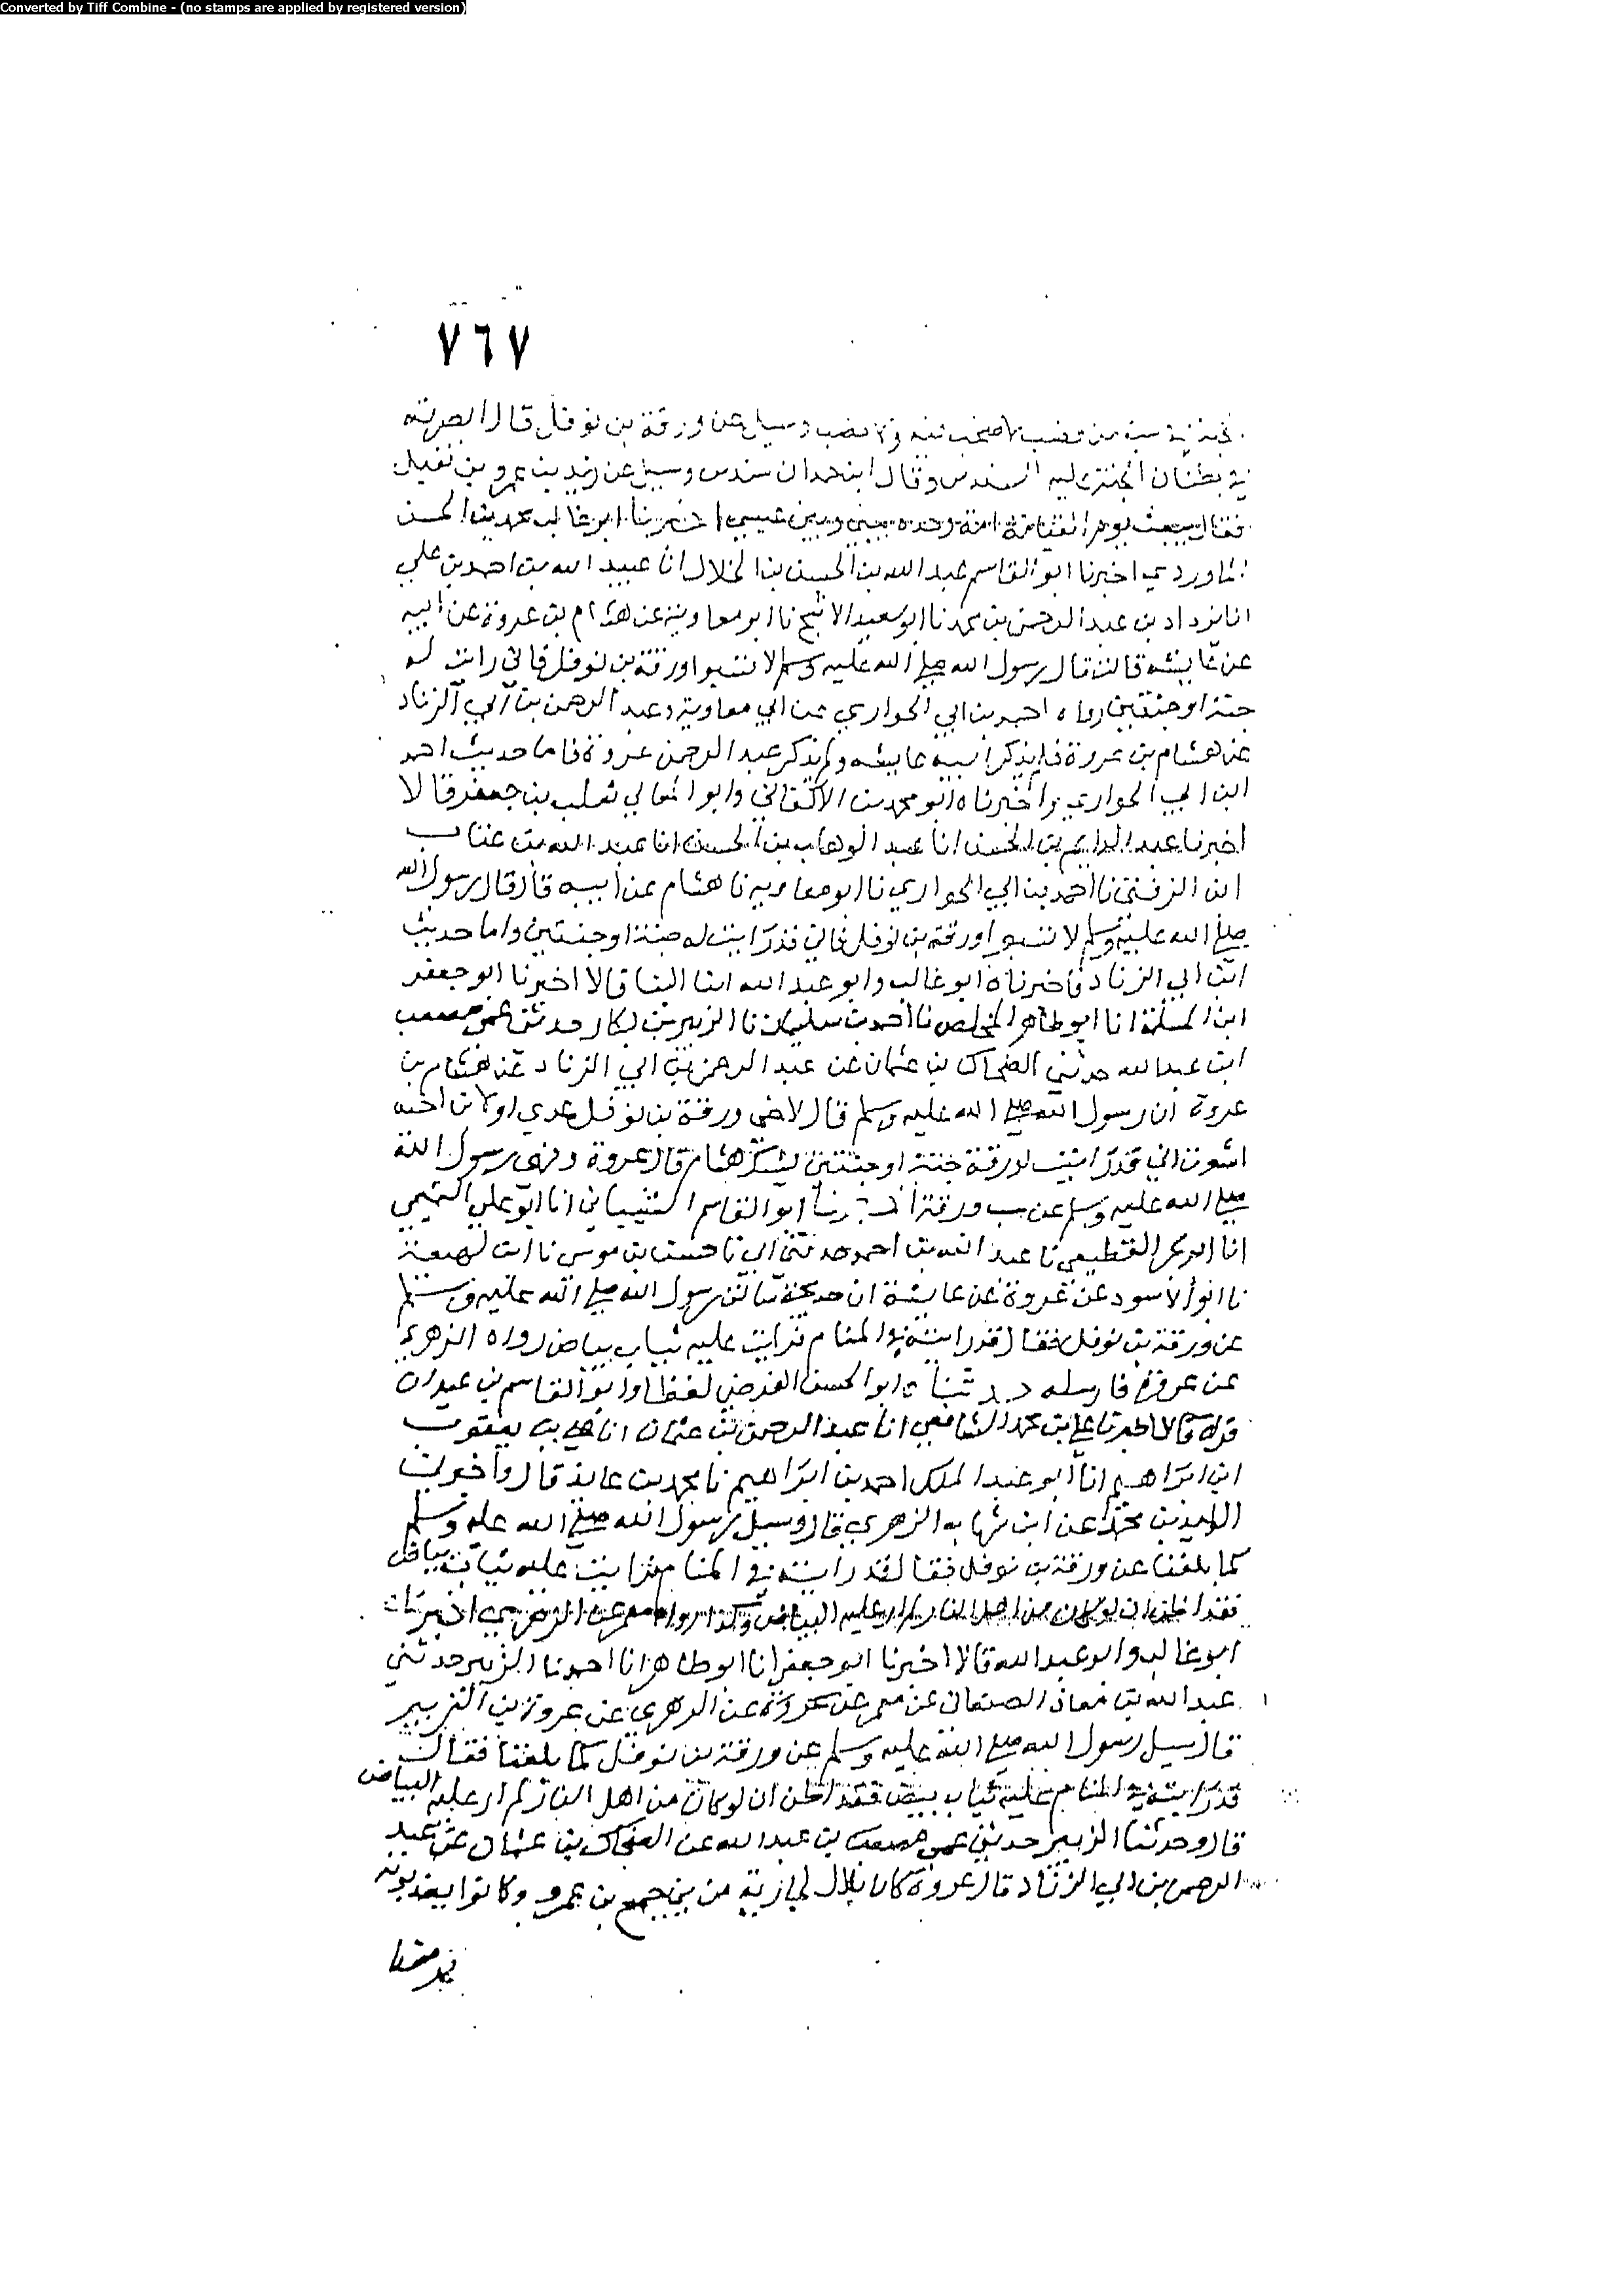 Converted by Tiff Combine - (no stamps are applied by registered version)
٧٦٧
من قصب لا صخب فيه ولا نصب وسيل عن ورقة بن نوفل قال ابصرته
في بطنان الجنة عليه السندس وقال ابن حمدان سندس وسيل عن زيد بن عمرو بن نفيل
فقال يبعث يوم القيامة امة وحده بيني وبين عيسى اخبرنا ابو غالب محمد بن الحسن
الماوردي اخبرنا ابو القاسم عبد الله بن الحسن بن الخلال انا عبيد الله بن احمد بن علي
انا يزداد بن عبد الرحمن بن محمد نا ابو سعيد الاشج نا ابو معاوية عن هشام بن عروة عن ابيه
عن عايشه قالت قال رسول الله صلى الله عليه وسلم لا تسبوا ورقة بن نوفل فاني رايت له
جنة او جنتين رواه احمد بن ابي الحواري عن ابي معاوية وعبد الرحمن بن ابي الزناد
عن هشام بن عروة فلم يذكر فيه عايشه ولم يذكر عبد الرحمن عروة فاما حديث احمد
ابن ابي الحواري فاخبرناه ابو محمد بن الاكفاني وابو المعالي ثعلب بن جعفر قالا
اخبرنا عبد الدايم بن الحسن انا عبد الوهاب بن الحسن انا عبد الله بن عتاب
ابن الزفتي نا احمد بن ابي الحواري نا ابو معاوية نا هشام عن ابيه قال قال رسول الله
صلى الله عليه وسلم لا تسبوا ورقة بن نوفل فاني قد رايت له جنة او جنتين واما حديث
ابن ابي الزناد فاخبرناه ابو غالب وابو عبد الله ابنا البنا قالا اخبرنا ابو جعفر
ابن المسلمة انا ابو طاهر المخلص نا احمد بن سليمان نا الزبير بن بكار حدثني عمي مصعب
ابن عبد الله حدثني الضحاك بن عثمان عن عبد الرحمن بن ابي الزناد عن هشام بن
عروة ان رسول الله صلى الله عليه وسلم قال لاخي ورقة بن نوفل عدي او لابن اخيه
اشعرت اني قد رايت لورقة جنة او جنتين يشك هشام قال عروة ونهى رسول الله
صلى الله عليه وسلم عن سب ورقة اخبرنا ابو القاسم الشيباني انا ابو علي التميمي
انا ابو بكر القطيعي نا عبد الله بن احمد حدثني ابي نا حسن بن موسى نا ابن لهيعة
نا ابو الاسود عن عروة عن عايشة ان خديجة سالت رسول الله صلى الله عليه وسلم
عن ورقة بن نوفل فقال قد رايته في المنام فرايت عليه ثياب بياض رواه الزهري
عن عروة فارسله حدثناه ابو الحسن الفرضي لفظا وابو القاسم بن عبدان
قراة قالا اخبرنا علي بن محمد الشافعي انا عبد الرحمن بن عثمان انا علي بن يعقوب
ابن ابراهيم انا ابو عبد الملك احمد بن ابراهيم نا محمد بن عايذ قال واخبرني
الوليد بن محمد عن ابن شهاب الزهري قال وسيل رسول الله صلى الله عليه وسلم
كما بلغنا عن ورقة بن نوفل فقال لقد رايته في المنام فرايت عليه ثياب بياض
فقد اظن ان لو كان من اهل النار لم ار عليه البياض وكذا رواه معمر عن الزهري اخبرناه
ابو غالب وابو عبد الله قالا اخبرنا ابو جعفر انا ابو طاهر انا احمد نا الزبير حدثني
عبد الله بن معاذ الصنعاني عن معمر عن الزهري عن عروة بن الزبير
قال سيل رسول الله صلى الله عليه وسلم عن ورقة بن نوفل كما بلغنا فقال
قد رايته في المنام عليه ثياب بيض فقد اظن ان لو كان من اهل النار لم ار عليه البياض
قال وحدثنا الزبير حدثني عمي مصعب بن عبد الله عن الضحاك بن عثمان عن عبد
الرحمن بن ابي الزناد قال عروة كان بلال لجارية من بني جمح بن عمرو وكانوا يعذبونه